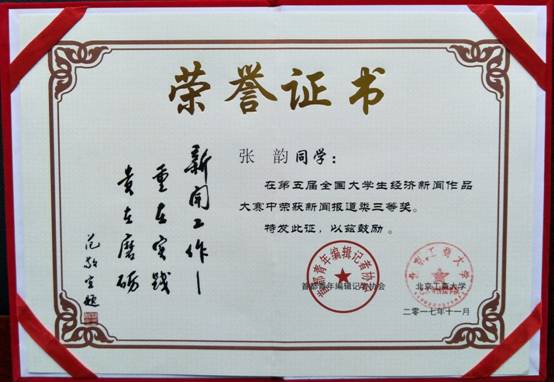 荣誉证书
张 韵同学：
在第五届全国大学生经济新闻作品
大赛中荣获新闻报道类三等奖。
特发此证，以兹鼓励。
首都青年编辑记者协会
北京工商大学
二〇一七年十一月
首都青年编辑记者协会
北京工商大学
新闻工作—
重在实践
贵在磨砺
范敬宜题